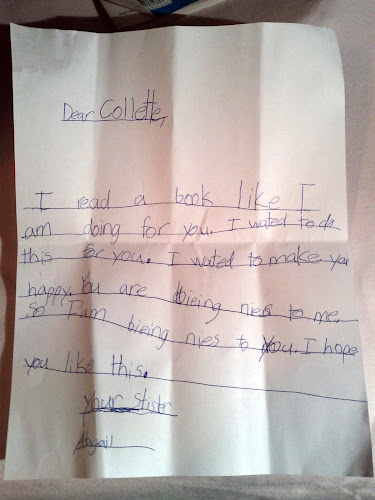 Dear Collette,
I read a book like I
am doing for you. I wated to do
this for you. I wated to make you
happy. You are bieing nies to me.
So I am bieing nies to you. I hope
you like this.
your sistr
Abigail